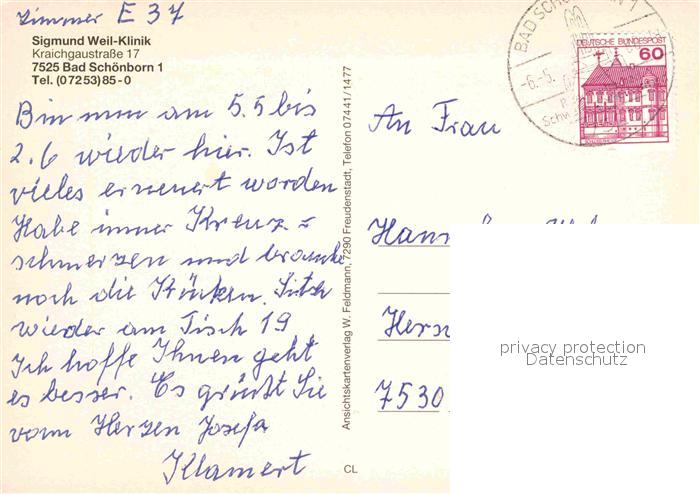 Zimmer E 37
Sigmund Weil-Klinik
Kraichgaustraße 17
7525 Bad Schönborn 1
Tel. (07253) 85-0
Bin nun am 5.5 bis
2.6 wieder hier. Ist
vieles erneuert worden
Habe immer Kreuz=
schmerzen und brauche
noch die Krücken. Sitze
wieder am Tisch 19
Ich hoffe Ihnen geht
es besser. Es grüßt Sie
vom Herzen Josefa
Klamert
Ansichtskartenverlag W. Feldmann, 7290 Freudenstadt, Telefon 07441/1477
CL
BAD SCHÖNBORN 1
-6.-5.
DEUTSCHE BUNDESPOST
60
An Frau
Hann
Hersn
7530
privacy protection
Datenschutz